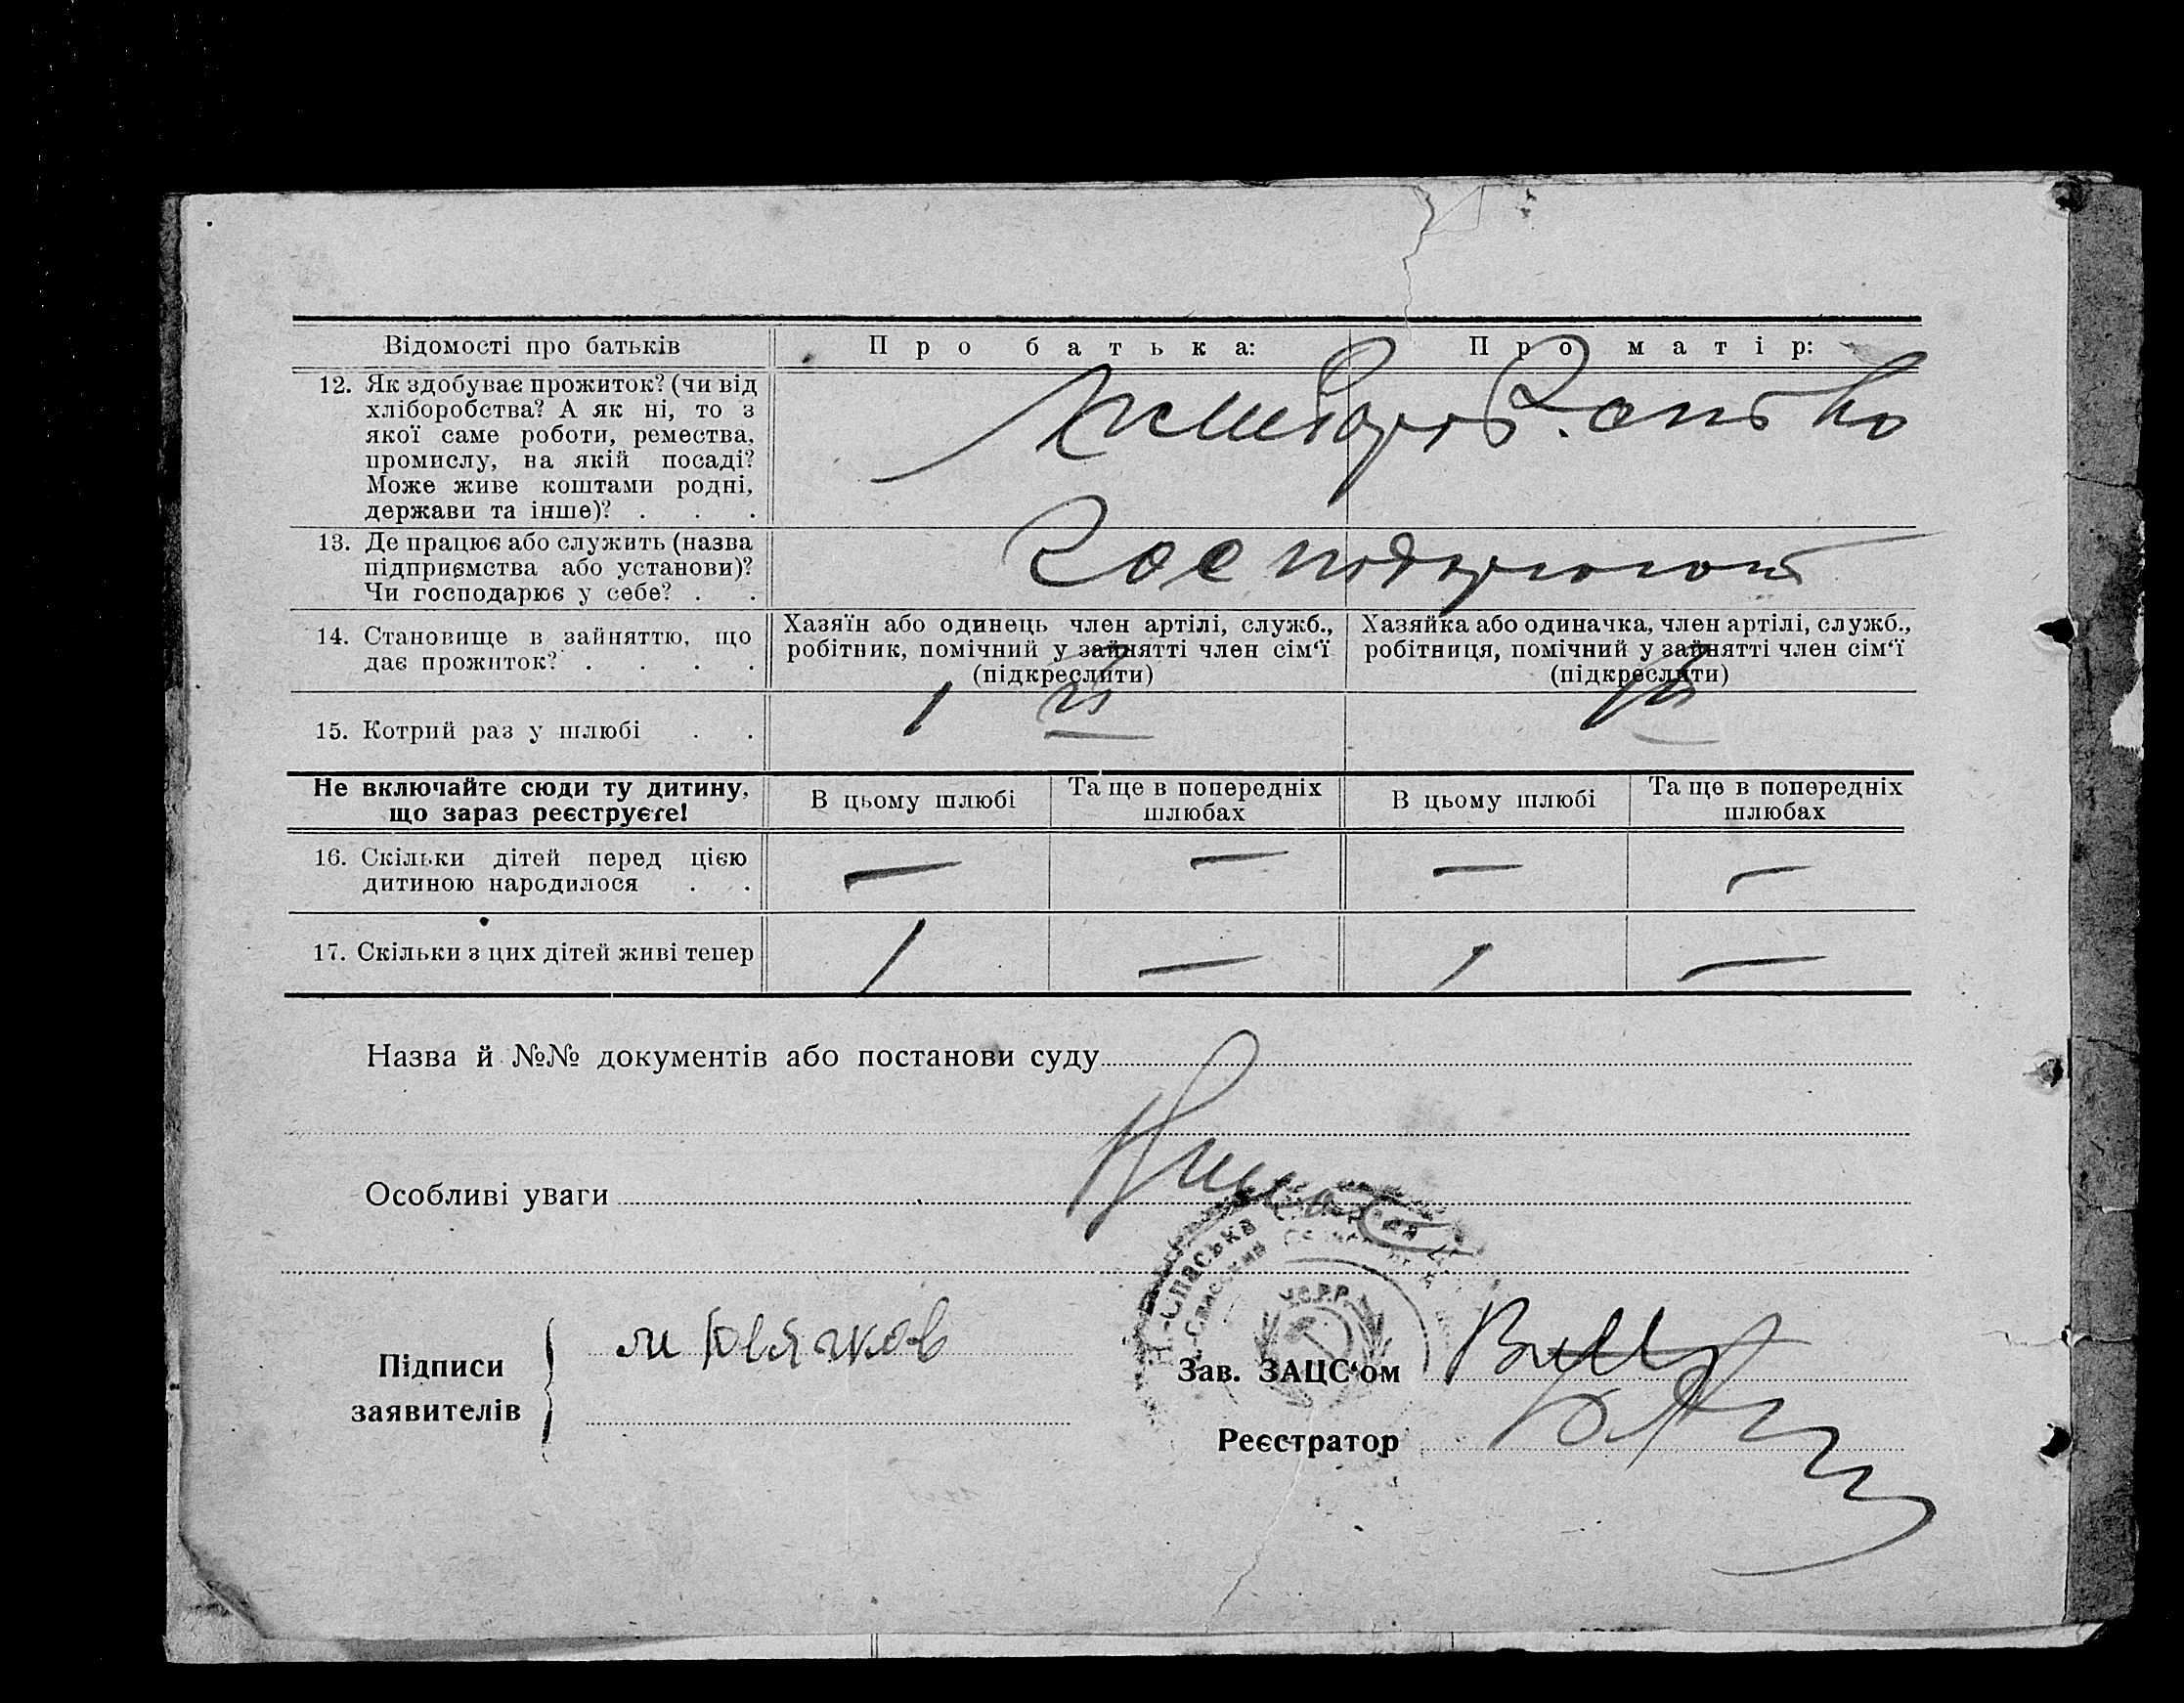 Відомості про батьків
Про батька:
Про матір:
12. Як здобуває прожиток? (чи від
хліборобства? А як ні, то з
якої саме роботи, ремества,
промислу, на якій посаді?
Може живе коштами родні,
держави та інше)? . . .
13. Де працює або служить (назва
підприємства або установи)?
Чи господарює у себе? . .
14. Становище в зайняттю, що
дає прожиток? . . . .
Хазяїн або одинець член артілі, служб.,
робітник, помічний у зайнятті член сім'ї
(підкреслити)
Хазяйка або одиначка, член артілі, служб.,
робітниця, помічний у зайнятті член сім'ї
(підкреслити)
15. Котрий раз у шлюбі . .
1
Не включайте сюди ту дитину,
що зараз реєструєте!
В цьому шлюбі
Та ще в попередніх
шлюбах
В цьому шлюбі
Та ще в попередніх
шлюбах
16. Скільки дітей перед цією
дитиною народилося . .
— — — —
17. Скільки з цих дітей живі тепер
1 — 1 —
Назва й №№ документів або постанови суду
Особливі уваги
Спаська
У.С.Р.Р.
Підписи
заявителів
Зав. ЗАЦС'ом
Реєстратор